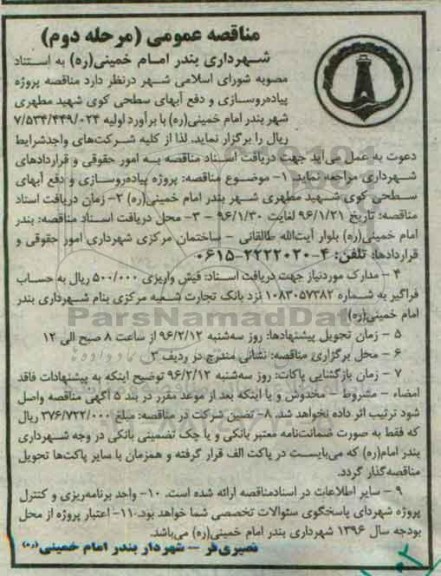 مناقصه عمومی (مرحله دوم)
شهرداری بندر امام خمینی(ره) به استناد
مصوبه شورای اسلامی شهر درنظر دارد مناقصه پروژه
پیاده‌روسازی و دفع آبهای سطحی کوی شهید مطهری
شهر بندر امام خمینی(ره) با برآورد اولیه ۷/۵۳۴/۴۴۹/۰۲۴
ریال را برگزار نماید. لذا از کلیه شرکت‌های واجدشرایط
دعوت به عمل می‌آید جهت دریافت اسناد مناقصه به امور حقوقی و قراردادهای
شهرداری مراجعه نمایند. ۱- موضوع مناقصه: پروژه پیاده‌روسازی و دفع آبهای
سطحی کوی شهید مطهری شهر بندر امام خمینی(ره) ۲- زمان دریافت اسناد
مناقصه: تاریخ ۹۶/۱/۲۱ لغایت ۹۶/۱/۳۰ - ۳- محل دریافت اسناد مناقصه: بندر
امام خمینی(ره) بلوار آیت‌الله طالقانی - ساختمان مرکزی شهرداری امور حقوقی و
قراردادها، تلفن: ۴-۰۶۱۵-۲۲۲۲۰۲۰
۴ - مدارک موردنیاز جهت دریافت اسناد: فیش واریزی ۵۰۰/۰۰۰ ریال به حساب
فراگیر به شماره ۱۰۸۳۰۵۷۳۸۲ نزد بانک تجارت شعبه مرکزی بنام شهرداری بندر
امام خمینی(ره)
ParsNamadData
۵ - زمان تحویل پیشنهادها: روز سه‌شنبه ۹۶/۲/۱۲ از ساعت ۸ صبح الی ۱۲
۶ - محل برگزاری مناقصه: نشانی مندرج در ردیف ۳
۷ - زمان بازگشایی پاکات: روز سه‌شنبه ۹۶/۲/۱۲ توضیح اینکه به پیشنهادات فاقد
امضاء - مشروط - مخدوش و یا اینکه بعد از موعد مقرر در بند ۵ آگهی مناقصه واصل
شود ترتیب اثر داده نخواهد شد. ۸- تضمین شرکت در مناقصه: مبلغ ۳۷۶/۷۲۲/۰۰۰ ریال
که فقط به صورت ضمانت‌نامه معتبر بانکی و یا چک تضمینی بانکی در وجه شهرداری
بندر امام(ره) که می‌بایست در پاکت الف قرار گرفته و همزمان با سایر پاکت‌ها تحویل
مناقصه‌گذار گردد.
۹ - سایر اطلاعات در اسنادمناقصه ارائه شده است. ۱۰- واحد برنامه‌ریزی و کنترل
پروژه شهردای پاسخگوی سئوالات تخصصی شما خواهد بود. ۱۱- اعتبار پروژه از محل
بودجه سال ۱۳۹۶ شهرداری بندر امام خمینی(ره) می‌باشد.
نصیری‌فر - شهردار بندر امام خمینی(ره)